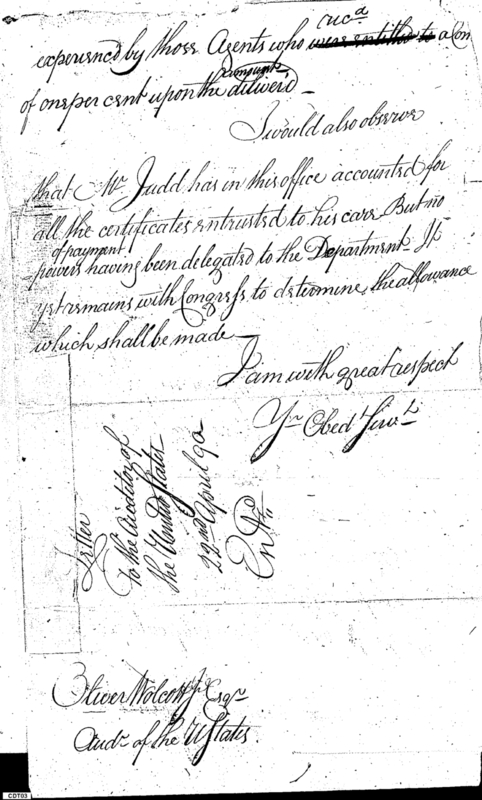 recd
experienced by those Agents who were entitled to a Com
amount
of one per cent upon the diliver'd
I would also observe
that Mr Judd has in this office accounted for
all the certificates entrusted to his care But no
of payment
powers having been delegated to the Department It
yet remains with Congress to determine the allowance
which shall be made
I am with great respect
Yr Obedt Servt
Letter
To the Auditor of
the United States
22nd April 90
Entd
Oliver Wolcott Jr Esqr
Audr of the UStates.
CDT03